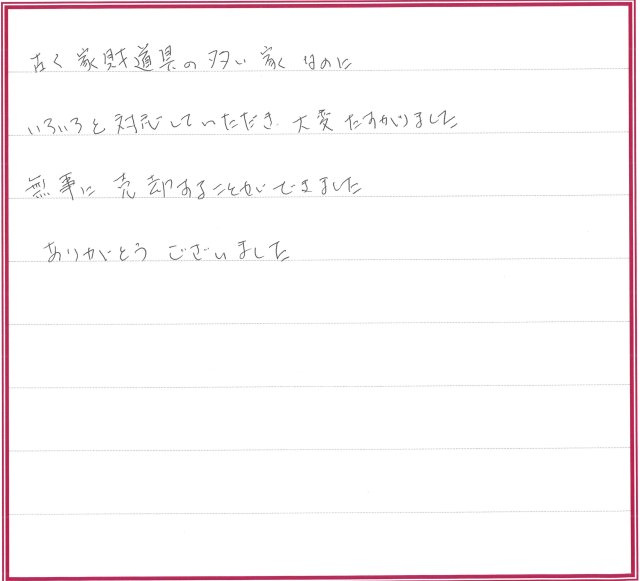 古く家財道具の多い家なのに
いろいろと対応していただき、大変たすかりました
無事に売却することができました
ありがとうございました